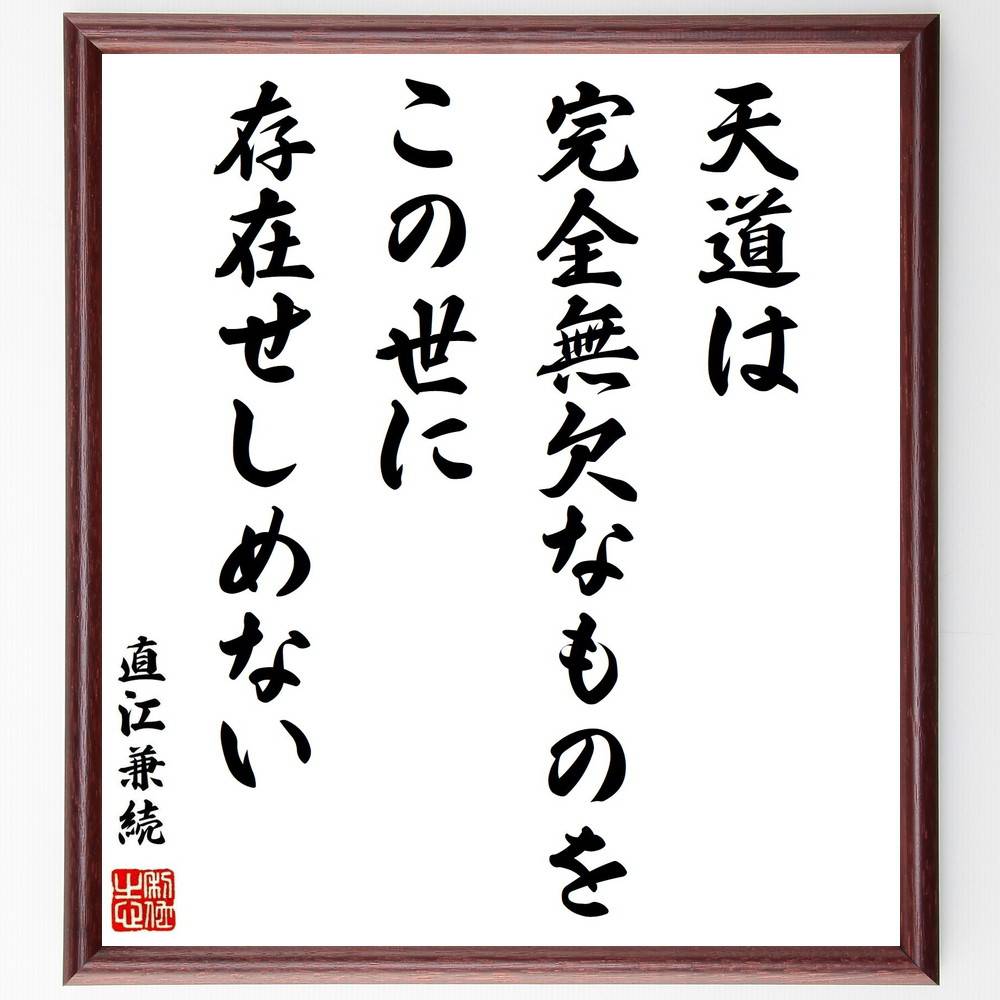 天道は
完全無欠なものを
この世に
存在せしめない
直江兼続